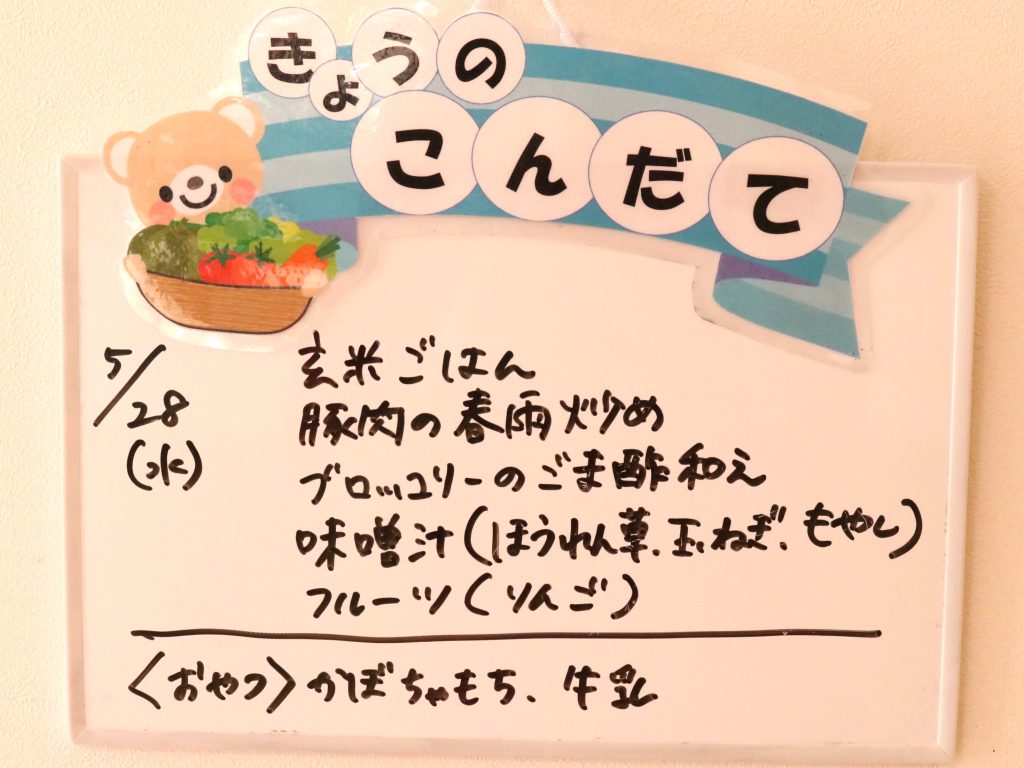 きょうの
こんだて
5/28
(水)
玄米ごはん
豚肉の春雨炒め
ブロッコリーのごま酢和え
味噌汁(ほうれん草、玉ねぎ、もやし)
フルーツ(りんご)
〈おやつ〉かぼちゃもち、牛乳